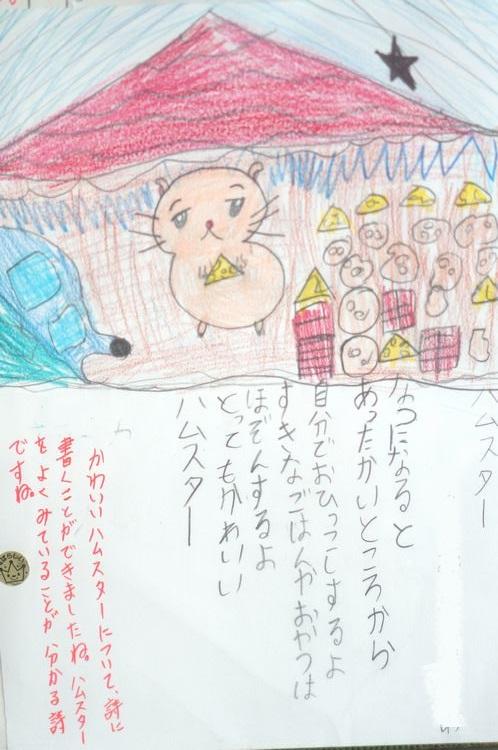 ハムスター
なつになると
あったかいところから
自分でおひっこしするよ
すきなごはんやおやつは
ほぞんするよ
とってもかわいい
ハムスター
かわいいハムスターについて、詩に
書くことができましたね。ハムスター
をよくみていることが分かる詩
ですね。